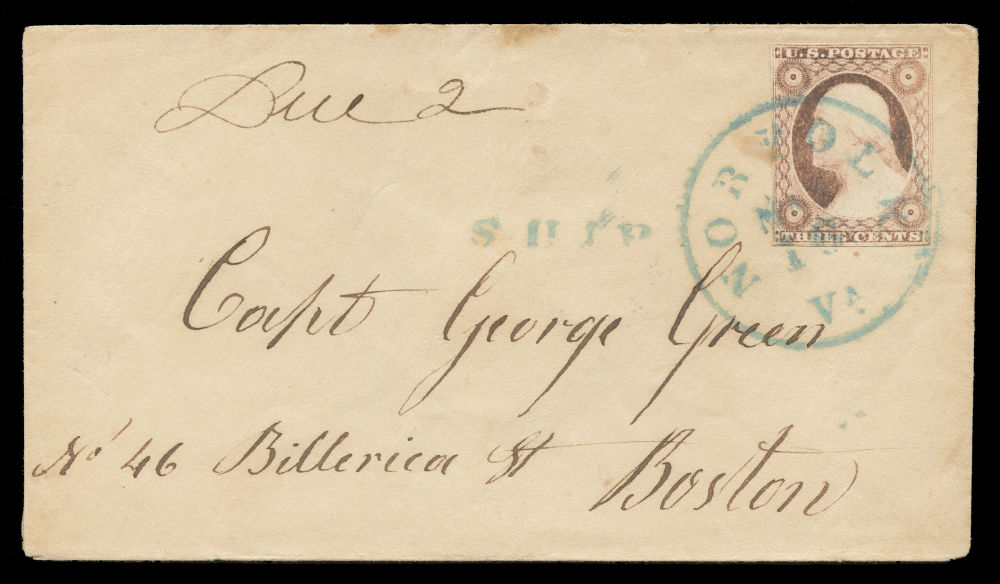 U.S. POSTAGE
Due 2
NORFOLK
SHIP
THREE CENTS
Va
Capt George Green
No 46 Billerica St Boston